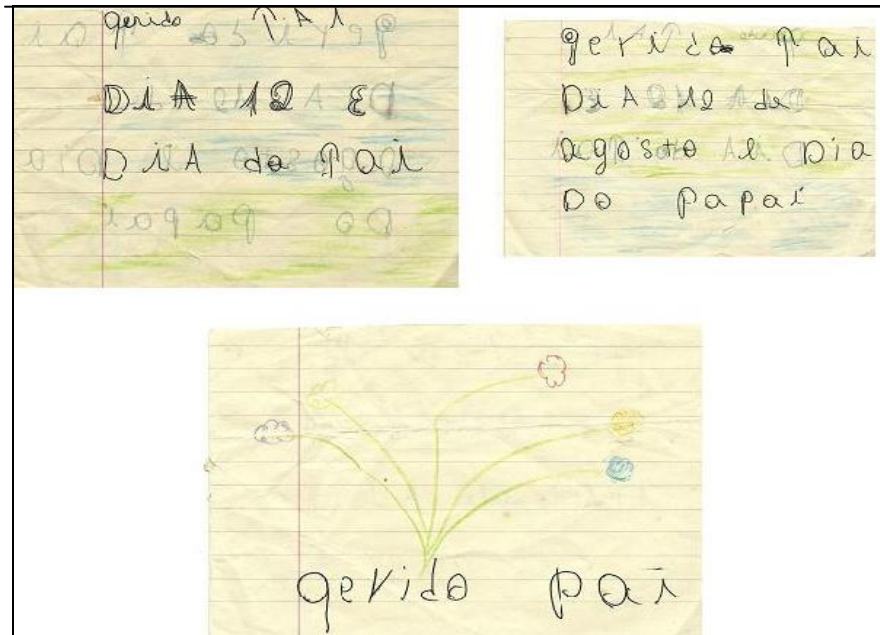 qerido PAi
DiA 12 E
DiA do Pai
qerido Pai
DiA 12 de
agosto e Dia
Do papai
qerido pai